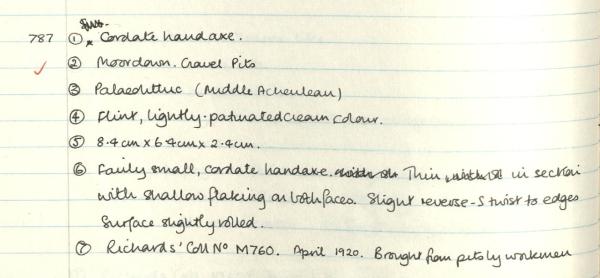 787 ① Cordate handaxe.
② Moordown. Gravel Pits
③ Palaeolithic (Middle Acheulean)
④ Flint, lightly patinated cream colour.
⑤ 8.4cm x 6.4cm x 2.4cm.
⑥ Fairly small, cordate handaxe. Thin in section
with shallow flaking on both faces. Slight reverse-S twist to edges
Surface slightly rolled.
⑦ Richards' Coll Nº M760. April 1920. Brought from pits by workmen